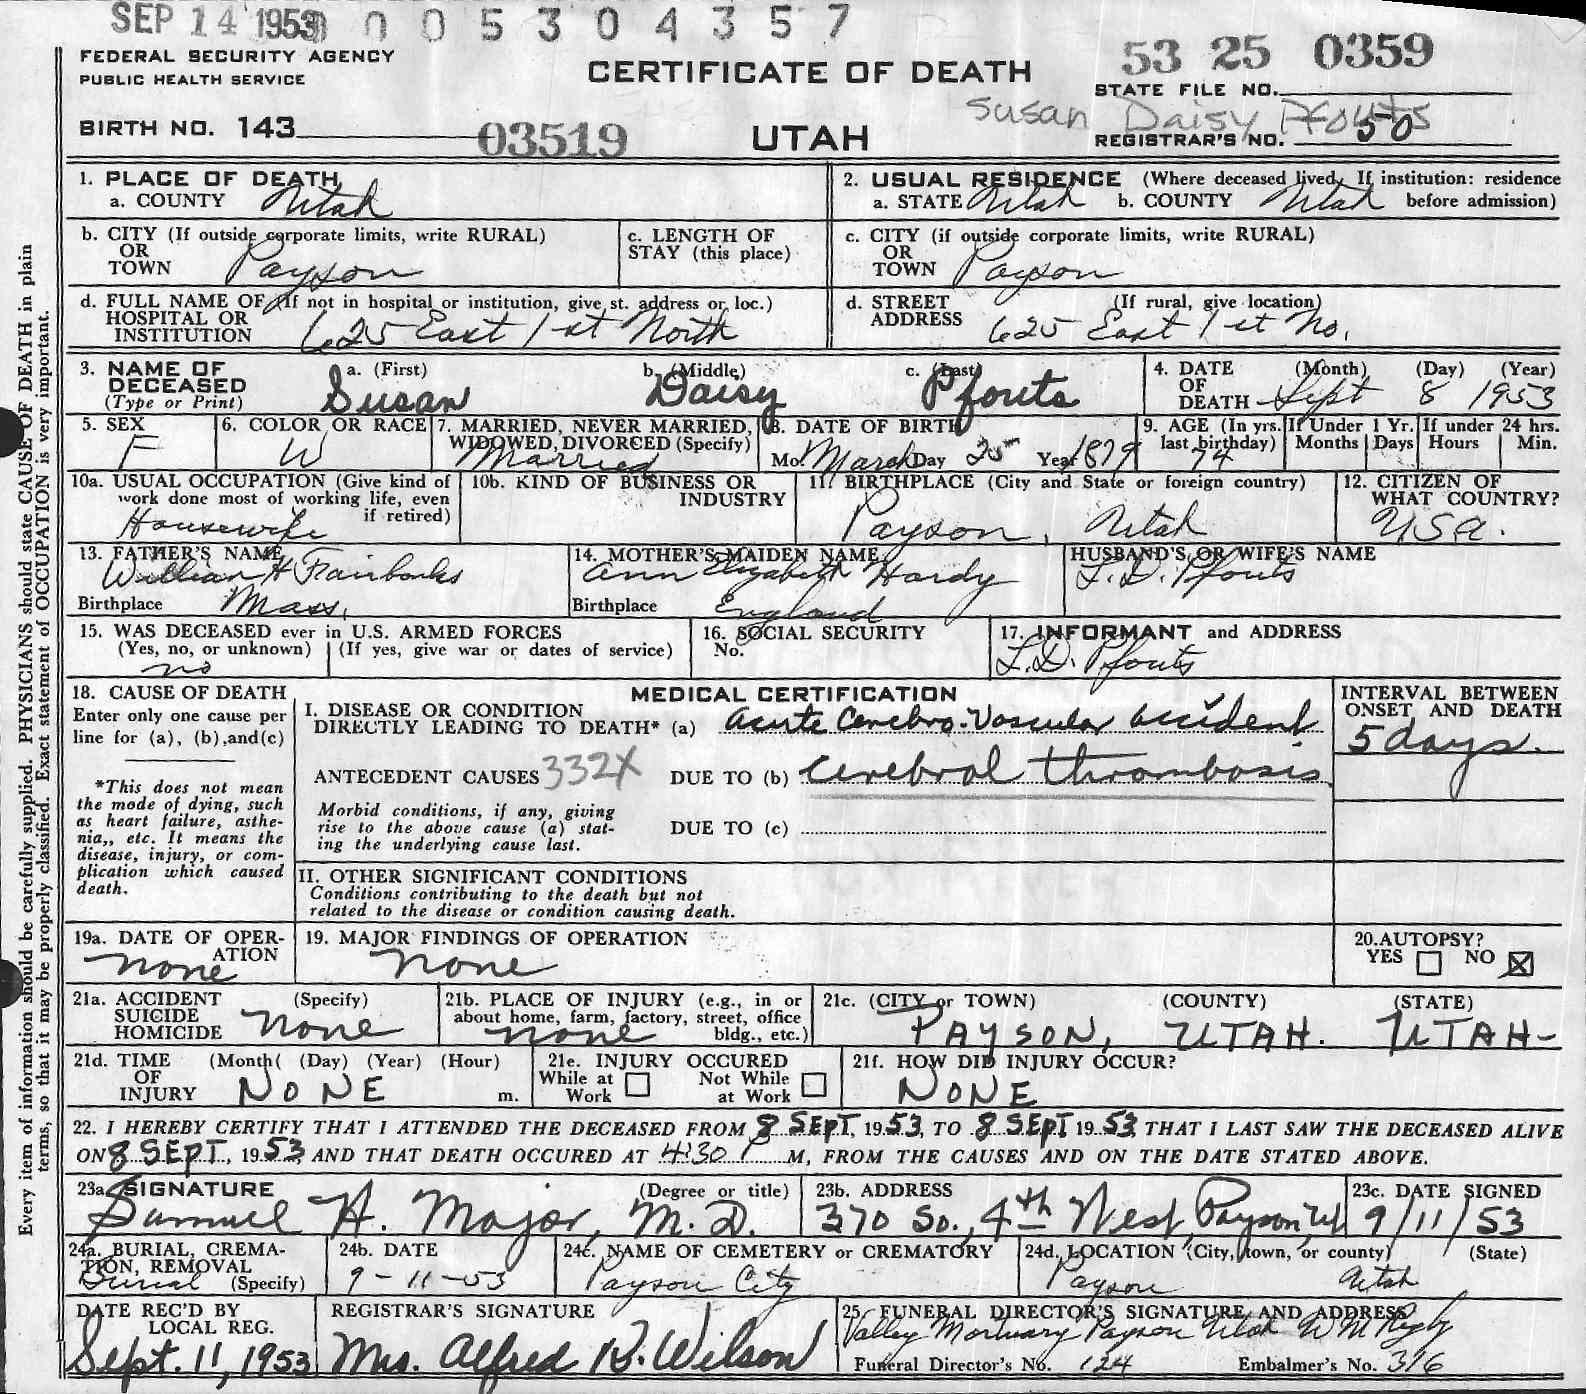 SEP 14 1953 0 0 5 3 0 4 3 5 7
FEDERAL SECURITY AGENCY
PUBLIC HEALTH SERVICE
CERTIFICATE OF DEATH
53 25 0359
STATE FILE NO.
Susan Daisy Pfouts
BIRTH NO. 143 03519
UTAH
REGISTRAR'S NO. 50
Every item of information should be carefully supplied. PHYSICIANS should state CAUSE OF DEATH in plain
terms, so that it may be properly classified. Exact statement of OCCUPATION is very important.
1. PLACE OF DEATH
a. COUNTY Utah
2. USUAL RESIDENCE (Where deceased lived. If institution: residence
a. STATE Utah b. COUNTY Utah before admission)
b. CITY (If outside corporate limits, write RURAL)
OR
TOWN Payson
c. LENGTH OF
STAY (this place)
c. CITY (if outside corporate limits, write RURAL)
OR
TOWN Payson
d. FULL NAME OF (If not in hospital or institution, give st. address or loc.)
HOSPITAL OR
INSTITUTION 625 East 1st North
d. STREET (If rural, give location)
ADDRESS 625 East 1st No.
3. NAME OF
DECEASED
(Type or Print)
a. (First) Susan
b. (Middle) Daisy
c. (Last) Pfouts
4. DATE (Month) (Day) (Year)
OF
DEATH Sept 8 1953
5. SEX
F
6. COLOR OR RACE
W
7. MARRIED, NEVER MARRIED,
WIDOWED, DIVORCED (Specify)
Married
8. DATE OF BIRTH
Mo. March Day 25 Year 1879
9. AGE (In yrs.
last birthday)
74
If Under 1 Yr.
Months Days
If under 24 hrs.
Hours Min.
10a. USUAL OCCUPATION (Give kind of
work done most of working life, even
if retired)
Housewife
10b. KIND OF BUSINESS OR
INDUSTRY
11. BIRTHPLACE (City and State or foreign country)
Payson, Utah
12. CITIZEN OF
WHAT COUNTRY?
USA.
13. FATHER'S NAME
William H Fairbanks
Birthplace Mass.
14. MOTHER'S MAIDEN NAME
Ann Elizabeth Hardy
Birthplace England
HUSBAND'S OR WIFE'S NAME
L.D. Pfouts
15. WAS DECEASED ever in U.S. ARMED FORCES
(Yes, no, or unknown) (If yes, give war or dates of service)
no
16. SOCIAL SECURITY
No.
17. INFORMANT and ADDRESS
L.D. Pfouts
18. CAUSE OF DEATH
Enter only one cause per
line for (a), (b), and(c)
*This does not mean
the mode of dying, such
as heart failure, asthe-
nia,, etc. It means the
disease, injury, or com-
plication which caused
death.
MEDICAL CERTIFICATION
I. DISEASE OR CONDITION
DIRECTLY LEADING TO DEATH* (a) Acute Cerebro-Vascular accident
ANTECEDENT CAUSES 332X DUE TO (b) Cerebral thrombosis
Morbid conditions, if any, giving
rise to the above cause (a) stat-
ing the underlying cause last.
DUE TO (c)
II. OTHER SIGNIFICANT CONDITIONS
Conditions contributing to the death but not
related to the disease or condition causing death.
INTERVAL BETWEEN
ONSET AND DEATH
5 days.
19a. DATE OF OPER-
ATION
none
19. MAJOR FINDINGS OF OPERATION
none
20. AUTOPSY?
YES NO X
21a. ACCIDENT (Specify)
SUICIDE
HOMICIDE none
21b. PLACE OF INJURY (e.g., in or
about home, farm, factory, street, office
bldg., etc.)
none
21c. (CITY or TOWN) (COUNTY) (STATE)
PAYSON, UTAH. UTAH-
21d. TIME (Month( (Day) (Year) (Hour)
OF
INJURY NONE m.
21e. INJURY OCCURED
While at Work Not While at Work
21f. HOW DID INJURY OCCUR?
NONE
22. I HEREBY CERTIFY THAT I ATTENDED THE DECEASED FROM 8 SEPT, 1953, TO 8 SEPT 1953, THAT I LAST SAW THE DECEASED ALIVE
ON 8 SEPT, 1953, AND THAT DEATH OCCURED AT 4:30 P M, FROM THE CAUSES AND ON THE DATE STATED ABOVE.
23a. SIGNATURE (Degree or title)
Samuel H. Major, M.D.
23b. ADDRESS
370 So., 4th West, Payson, Ut
23c. DATE SIGNED
9/11/53
24a. BURIAL, CREMA-
TION, REMOVAL
Burial (Specify)
24b. DATE
9-11-53
24c. NAME OF CEMETERY or CREMATORY
Payson City
24d. LOCATION (City, town, or county) (State)
Payson Utah
DATE REC'D BY
LOCAL REG.
Sept. 11, 1953
REGISTRAR'S SIGNATURE
Mrs. Alfred R. Wilson
25. FUNERAL DIRECTOR'S SIGNATURE AND ADDRESS
Valley Mortuary Payson Utah W M Rigby
Funeral Director's No. 124 Embalmer's No. 316